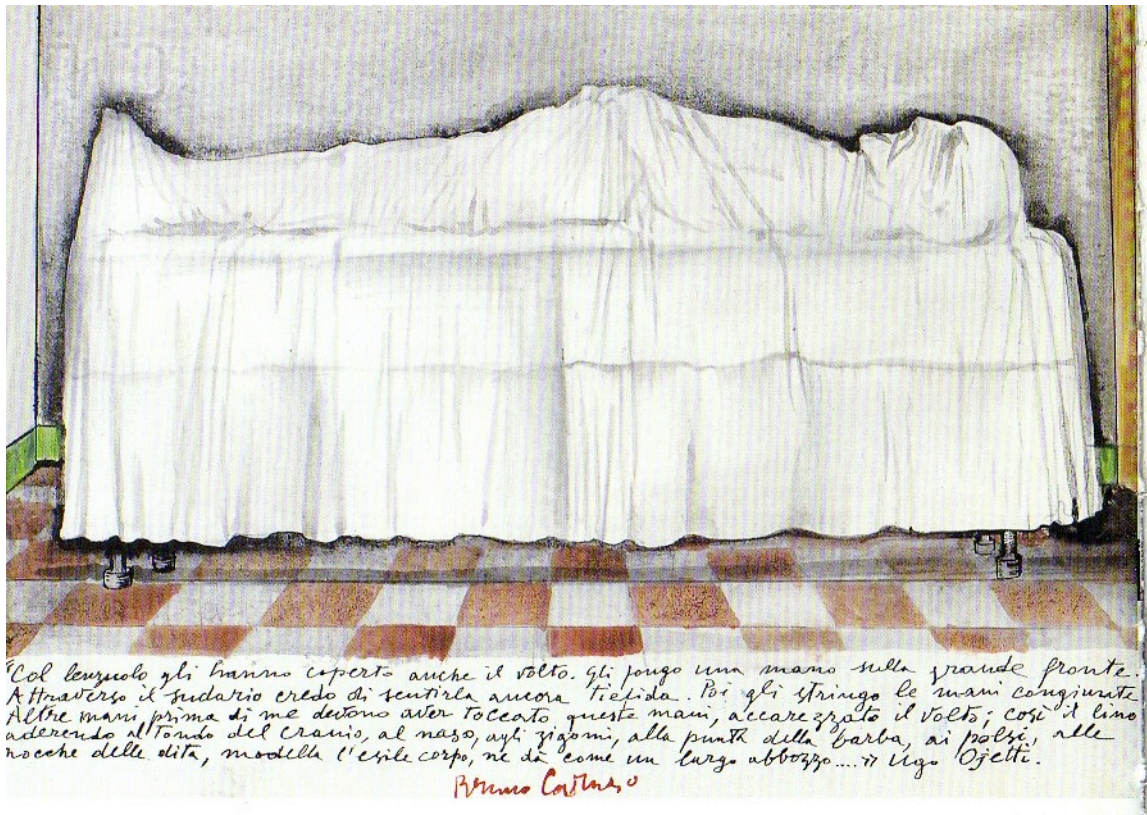 "Col lenzuolo gli hanno coperto anche il volto. Gli pongo una mano sulla grande fronte.
Attraverso il sudario credo di sentirla ancora tiepida. Poi gli stringo le mani congiunte
Altre mani, prima di me devono aver toccato queste mani, accarezzato il volto; così il lino
aderendo al tondo del cranio, al naso, agli zigomi, alla punta della barba, ai polsi, alle
nocche delle dita, modella l'esile corpo, ne dà come un largo abbozzo.... Ugo Ojetti.
Bruno Caruso